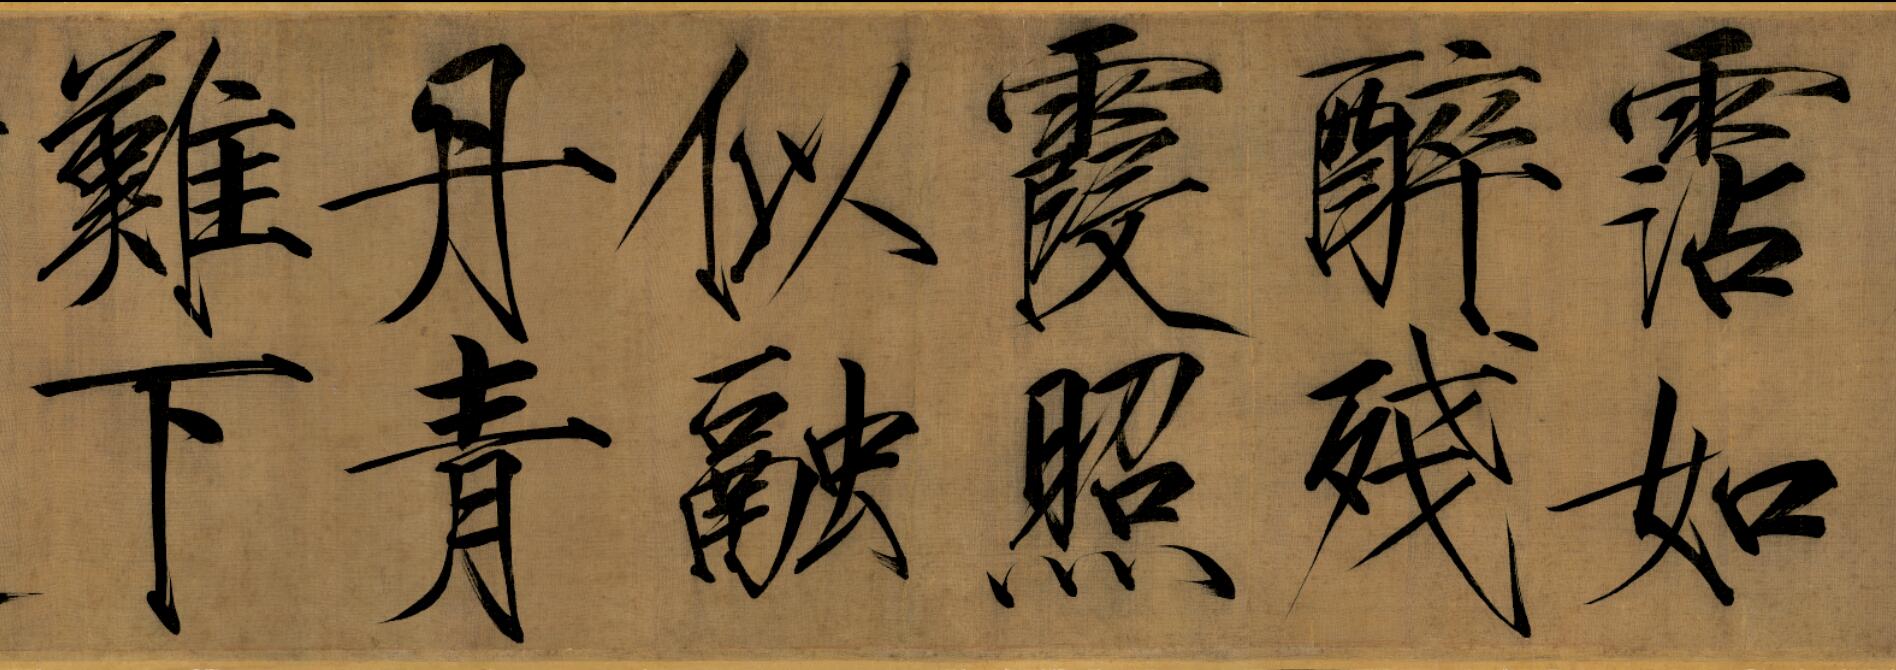 霑如
醉殘
霞照
似融
丹青
難下